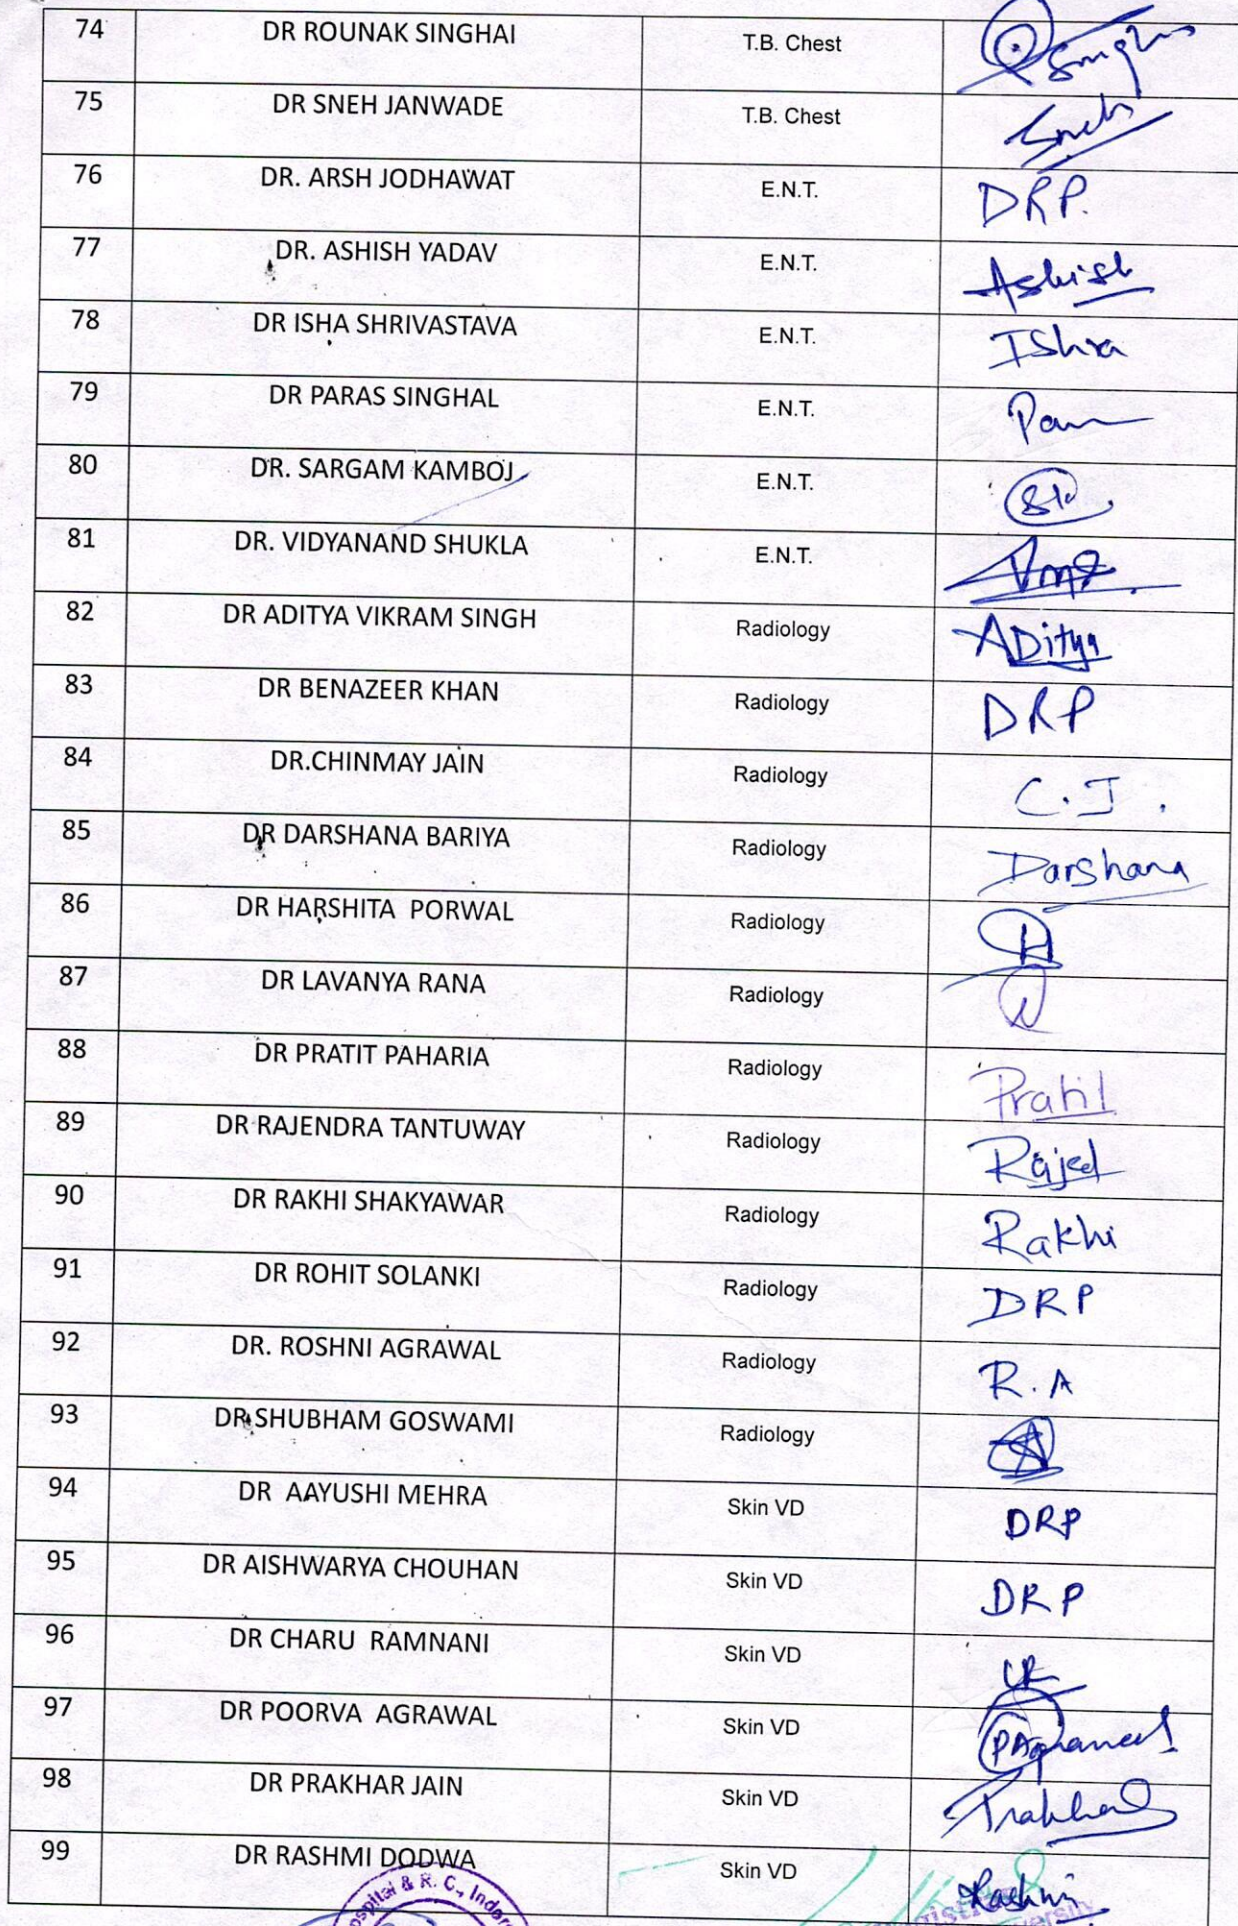 74 DR ROUNAK SINGHAI T.B. Chest
75 DR SNEH JANWADE T.B. Chest Sneh
76 DR. ARSH JODHAWAT E.N.T. DRP.
77 DR. ASHISH YADAV E.N.T. Ashish
78 DR ISHA SHRIVASTAVA E.N.T. IShra
79 DR PARAS SINGHAL E.N.T.
80 DR. SARGAM KAMBOJ E.N.T.
81 DR. VIDYANAND SHUKLA E.N.T.
82 DR ADITYA VIKRAM SINGH Radiology ADitya
83 DR BENAZEER KHAN Radiology DRP
84 DR.CHINMAY JAIN Radiology C.J.
85 DR DARSHANA BARIYA Radiology Darshana
86 DR HARSHITA PORWAL Radiology H
87 DR LAVANYA RANA Radiology
88 DR PRATIT PAHARIA Radiology Pratit
89 DR RAJENDRA TANTUWAY Radiology
90 DR RAKHI SHAKYAWAR Radiology Rakhi
91 DR ROHIT SOLANKI Radiology DRP
92 DR. ROSHNI AGRAWAL Radiology R.A
93 DR SHUBHAM GOSWAMI Radiology
94 DR AAYUSHI MEHRA Skin VD DRP
95 DR AISHWARYA CHOUHAN Skin VD DRP
96 DR CHARU RAMNANI Skin VD
97 DR POORVA AGRAWAL Skin VD
98 DR PRAKHAR JAIN Skin VD Prakhar
99 DR RASHMI DODWA Skin VD Rashmi
& R. C., Indore